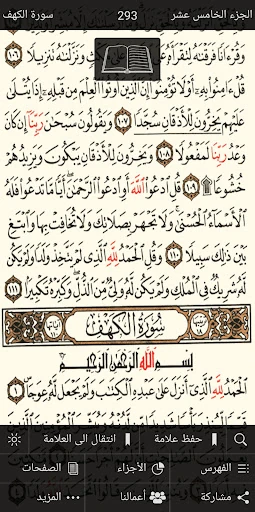 الجزء الخامس عشر 293 سورة الكهف
وَقُرْءَانًا فَرَقْنَٰهُ لِتَقْرَأَهُۥ وَنَزَّلْنَٰهُ تَنزِيلًا ١٠٦
قُلْ ءَامِنُوا۟ بِهِۦٓ أَوْ لَا تُؤْمِنُوٓا۟ إِنَّ ٱلَّذِينَ أُوتُوا۟ ٱلْعِلْمَ مِن قَبْلِهِۦٓ إِذَا يُتْلَىٰ
عَلَيْهِمْ يَخِرُّونَ لِلْأَذْقَانِ سُجَّدًا ١٠٧ وَيَقُولُونَ سُبْحَٰنَ رَبِّنَآ إِن كَانَ
وَعْدُ رَبِّنَا لَمَفْعُولًا ١٠٨ وَيَخِرُّونَ لِلْأَذْقَانِ يَبْكُونَ وَيَزِيدُهُمْ
خُشُوعًا ۩ ١٠٩ قُلِ ٱدْعُوا۟ ٱللَّهَ أَوِ ٱدْعُوا۟ ٱلرَّحْمَٰنَ أَيًّا مَّا تَدْعُوا۟ فَلَهُ
ٱلْأَسْمَآءُ ٱلْحُسْنَىٰ وَلَا تَجْهَرْ بِصَلَاتِكَ وَلَا تُخَافِتْ بِهَا وَٱبْتَغِ
بَيْنَ ذَٰلِكَ سَبِيلًا ١١٠ وَقُلِ ٱلْحَمْدُ لِلَّهِ ٱلَّذِى لَمْ يَتَّخِذْ وَلَدًا وَلَمْ يَكُن
لَّهُۥ شَرِيكٌ فِى ٱلْمُلْكِ وَلَمْ يَكُن لَّهُۥ وَلِىٌّ مِّنَ ٱلذُّلِّ وَكَبِّرْهُ تَكْبِيرًۢا ١١١
سُورَةُ ٱلْكَهْفِ
بِسْمِ ٱللَّهِ ٱلرَّحْمَٰنِ ٱلرَّحِيمِ
ٱلْحَمْدُ لِلَّهِ ٱلَّذِىٓ أَنزَلَ عَلَىٰ عَبْدِهِ ٱلْكِتَٰبَ وَلَمْ يَجْعَل لَّهُۥ عِوَجَا ١
حفظ علامة انتقال الى العلامة
الفهرس الأجزاء الصفحات
مشاركة أعمالنا المزيد